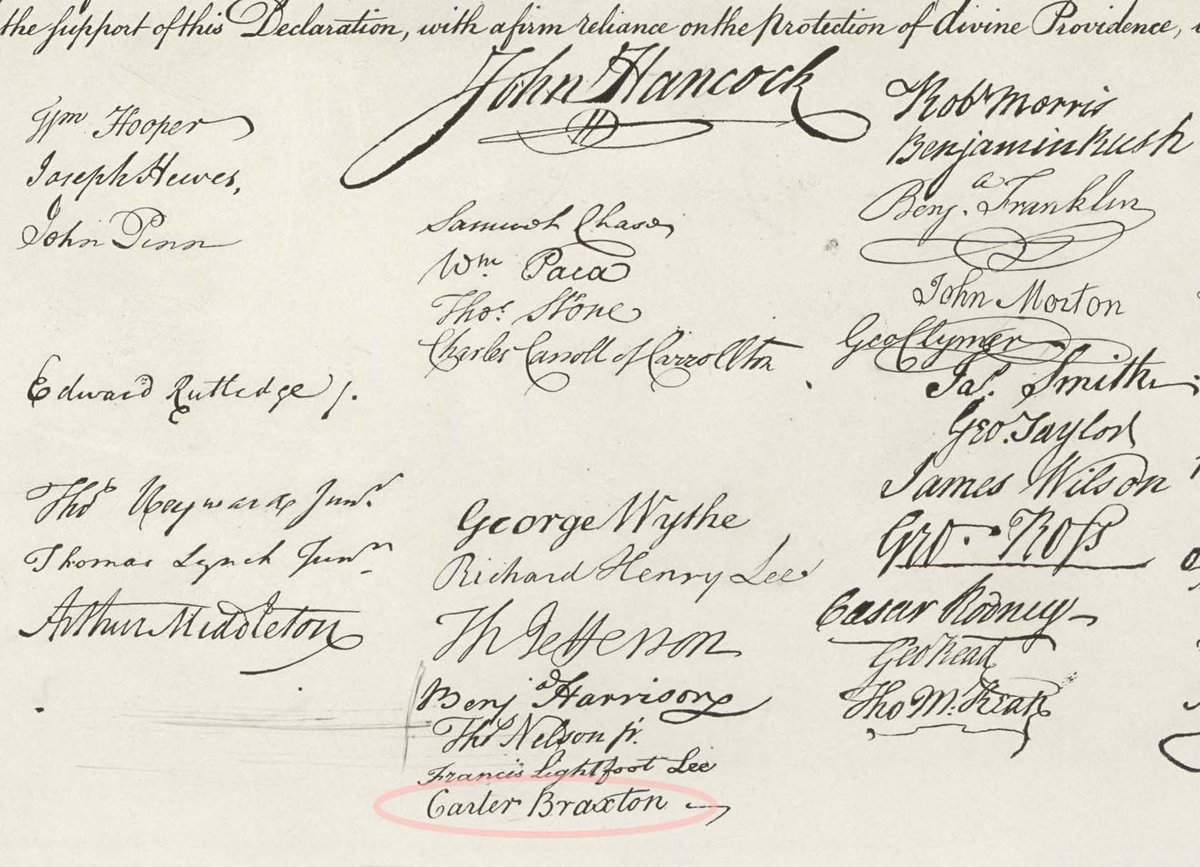 the support of this Declaration, with a firm reliance on the protection of divine Providence,
John Hancock
Wm Hooper
Joseph Hewes,
John Penn
Edward Rutledge /.
Thos Heyward Junr.
Thomas Lynch Junr.
Arthur Middleton
Samuel Chase
Wm. Paca
Thos. Stone
Charles Carroll of Carrollton
George Wythe
Richard Henry Lee
Th Jefferson
Benja Harrison
Thos Nelson jr.
Francis Lightfoot Lee
Carter Braxton
Robt Morris
Benjamin Rush
Benja. Franklin
John Morton
Geo Clymer
Jas. Smith
Geo. Taylor
James Wilson
Geo. Ross
Caesar Rodney
Geo Read
Tho M:Kean